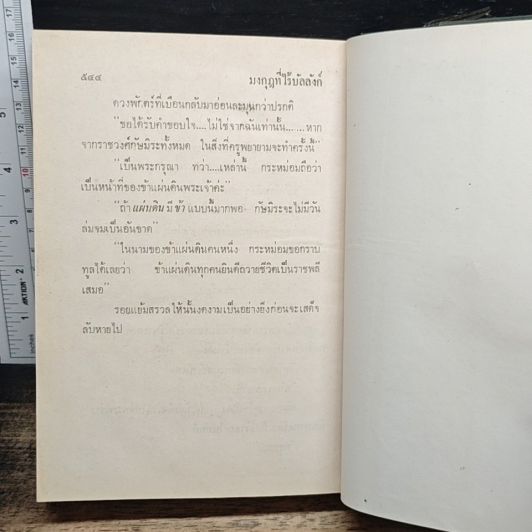 ๕๔๔ มงกุฎที่ไร้บัลลังก์
ดวงพักตร์ที่เบือนกลับมาอ่อนละมุนกว่าปรกติ
"ขอได้รับคำขอบใจ....ไม่ใช่จากฉันเท่านั้น.......หาก
จากราชวงศ์กัษมิระทั้งหมด ในสิ่งที่ครูพยายามจะทำครั้งนี้"
"เป็นพระกรุณา ทว่า....เหล่านี้ กระหม่อมถือว่า
เป็นหน้าที่ของข้าแผ่นดินพระเจ้าค่ะ"
"ถ้าแผ่นดินมีข้าแบบนี้มากพอ กัษมิระจะไม่มีวัน
ล่มจมเป็นอันขาด"
"ในนามของข้าแผ่นดินคนหนึ่ง กระหม่อมขอกราบ
ทูลได้เลยว่า ข้าแผ่นดินทุกคนยินดีถวายชีวิตเป็นราชพลี
เสมอ"
รอยแย้มสรวลให้นั้นงดงามเป็นอย่างยิ่งก่อนจะเสด็จ
ลับหายไป